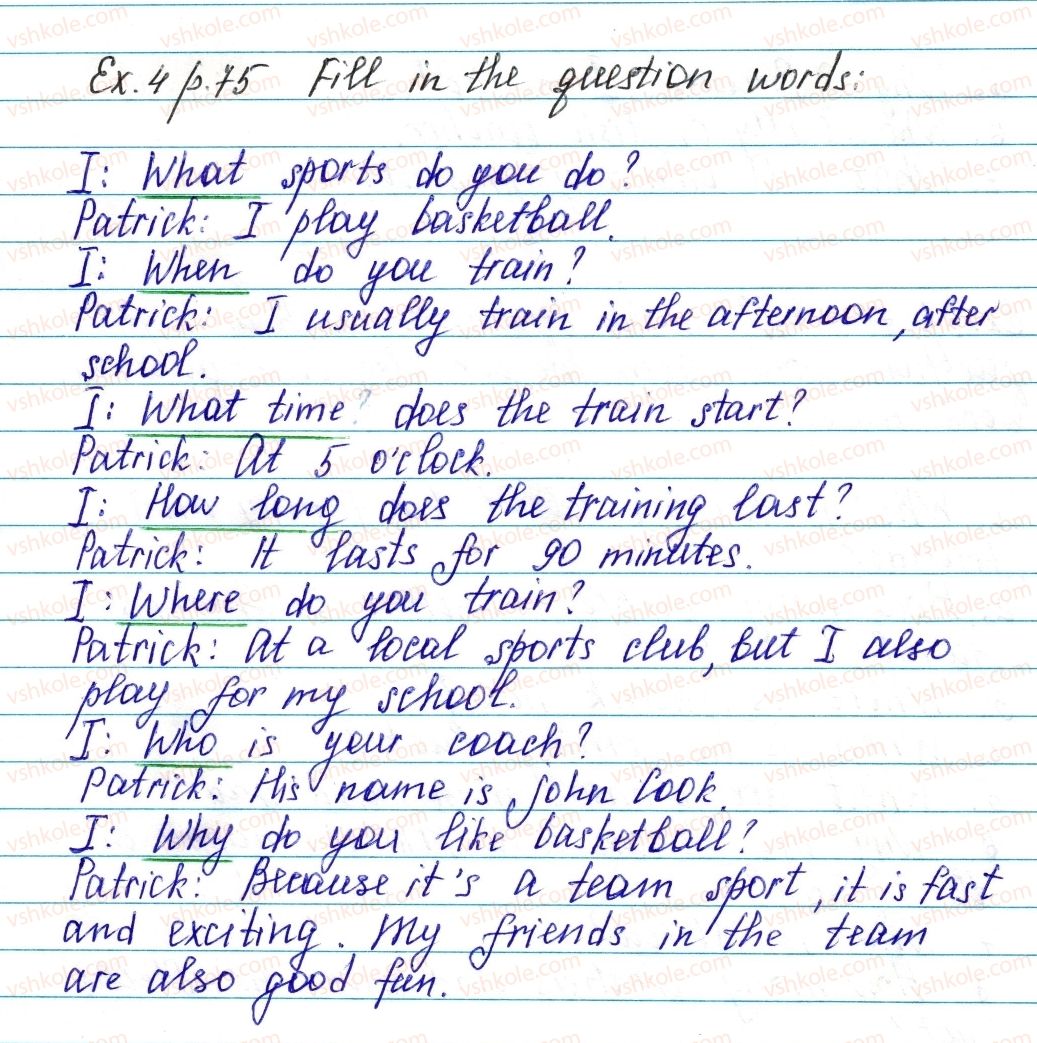 Ex. 4 p. 75 Fill in the question words:
I: What sports do you do?
Patrick: I play basketball.
I: When do you train?
Patrick: I usually train in the afternoon, after
school.
I: What time? does the train start?
Patrick: At 5 o'clock.
I: How long does the training last?
Patrick: It lasts for 90 minutes.
I: Where do you train?
Patrick: At a local sports club, but I also
play for my school.
I: Who is your coach?
Patrick: His name is John Cook.
I: Why do you like basketball?
Patrick: Because it's a team sport, it is fast
and exciting. My friends in the team
are also good fun.